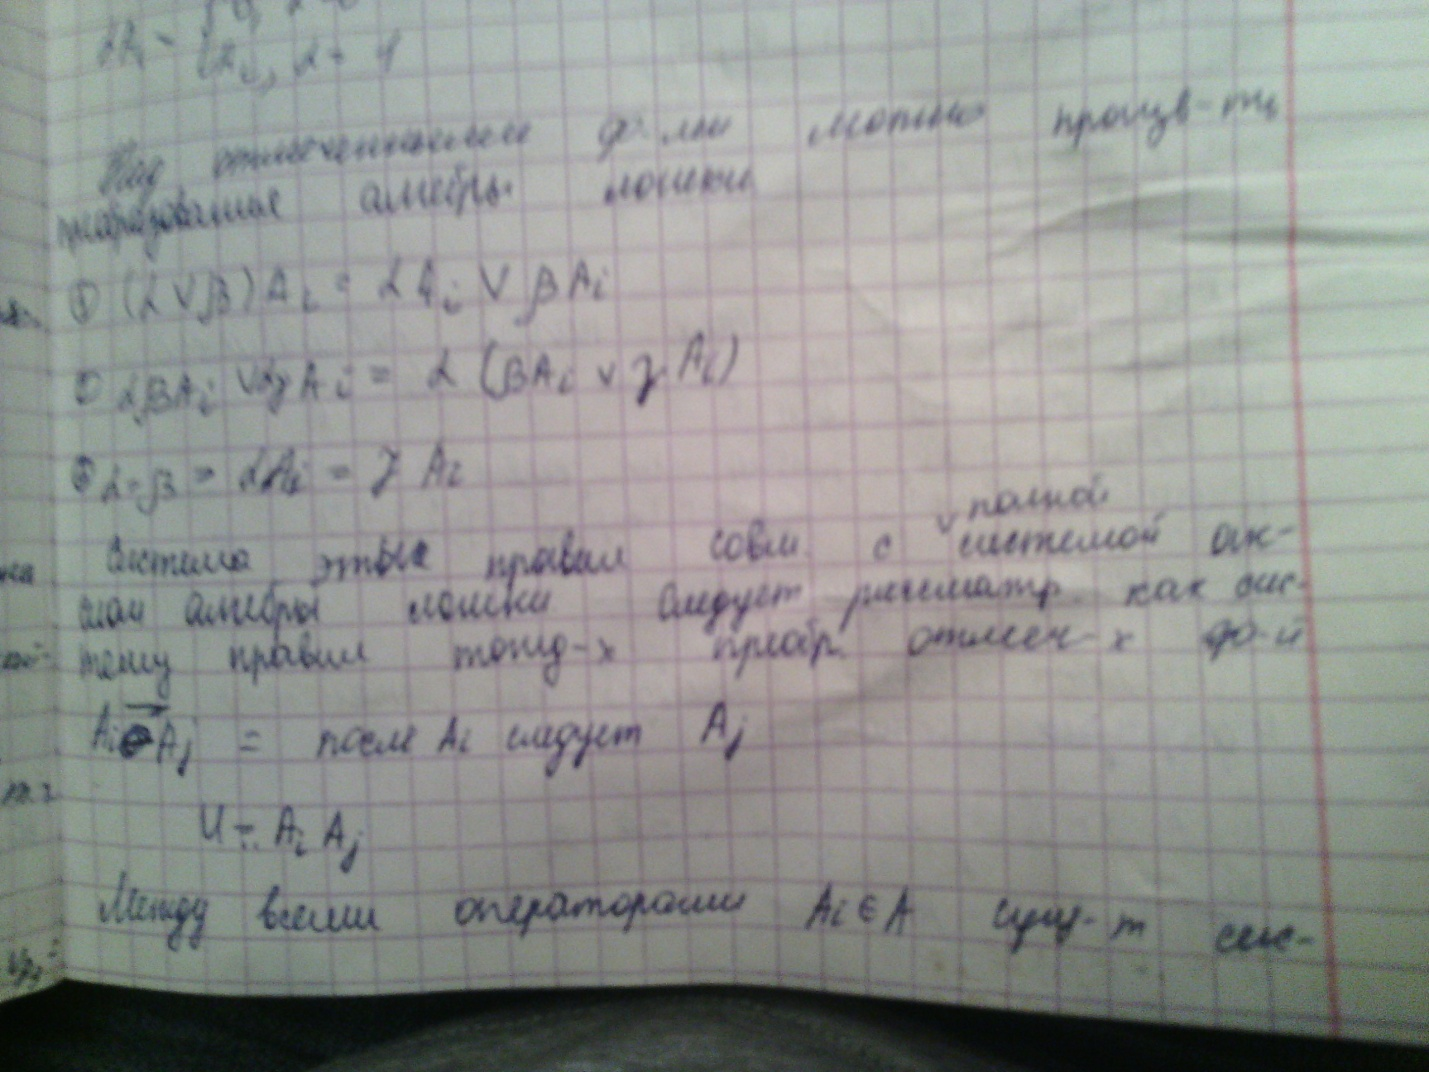 αAi = { Ai, α = 1
Над отмеченными ф-лми можно произв-ть
преобразование алгебры логики
(α ∨ β) Ai = αAi ∨ βAi
αβAi ∨ αγAi = α (βAi ∨ γAi)
α = β = αAi = γ Ai
∨ полной
Система этых правил совм с системой ак-
сиом алгебры логики следует рассматр. как сис-
тему правил тожд-х преобр. отмеч-х ф-й
Ai Aj = после Ai следует Aj
U = Ai Aj
Между всеми операторами Ai ∈ A сущ-т сис-